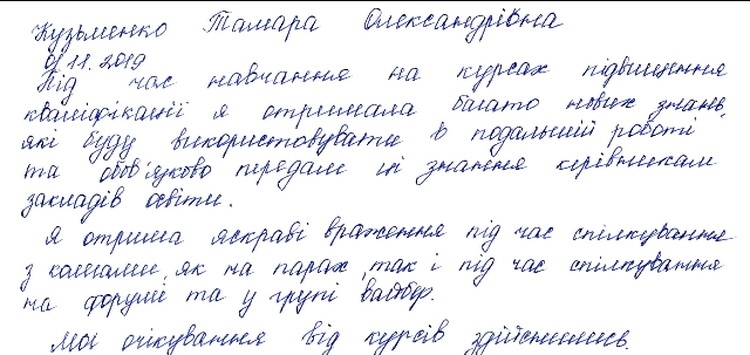 Кузьменко Тамара Олександрівна
01.11.2019
Під час навчання на курсах підвищення
кваліфікації я отримала багато нових знань,
які буду використовувати в подальшій роботі
та обов'язково передам ці знання керівникам
закладів освіти.
Я отрима яскраві враження під час спілкування
з колегами, як на парах, так і під час спілкування
на форумі та у групі вайбер.
Мої очікування від курсів здійснились.